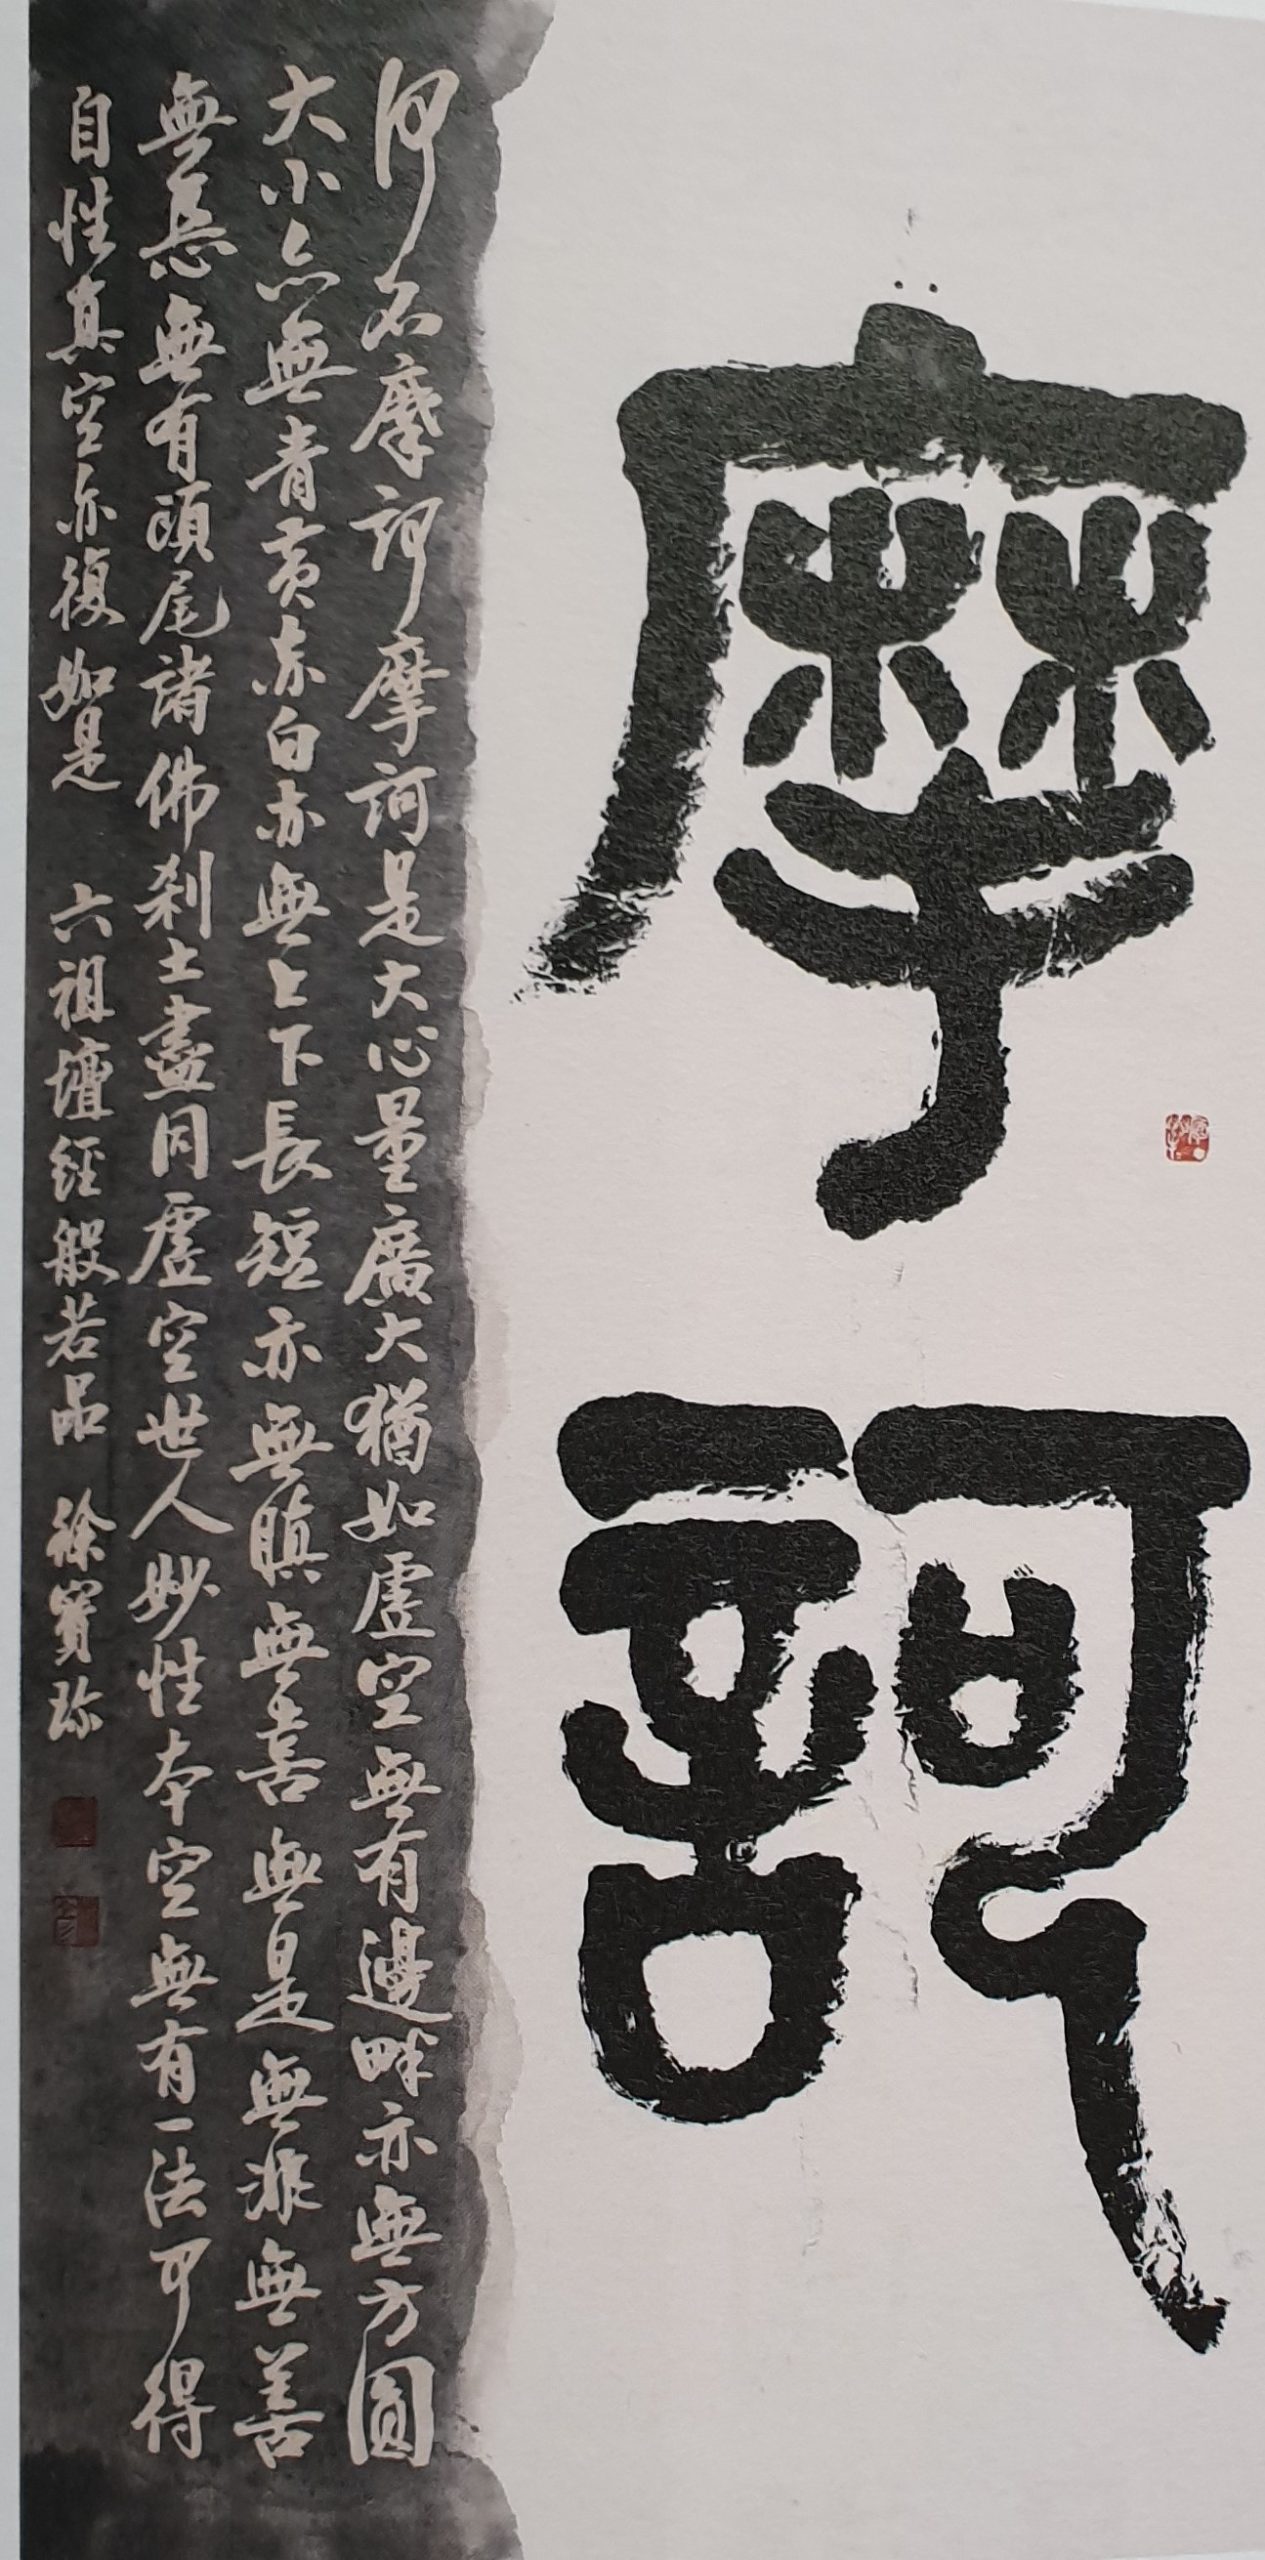 摩訶
何名摩訶摩訶是大心量廣大猶如虛空無有邊畔亦無方圓
大小亦無青黃赤白亦無上下長短亦無瞋無喜無是無非無善
無惡無有頭尾諸佛剎土盡同虛空世人妙性本空無有一法可得
自性真空亦復如是 六祖壇經般若品 徐寶珍